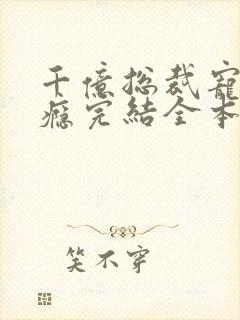 千億總裁寵
癮完結全本
笑不穿